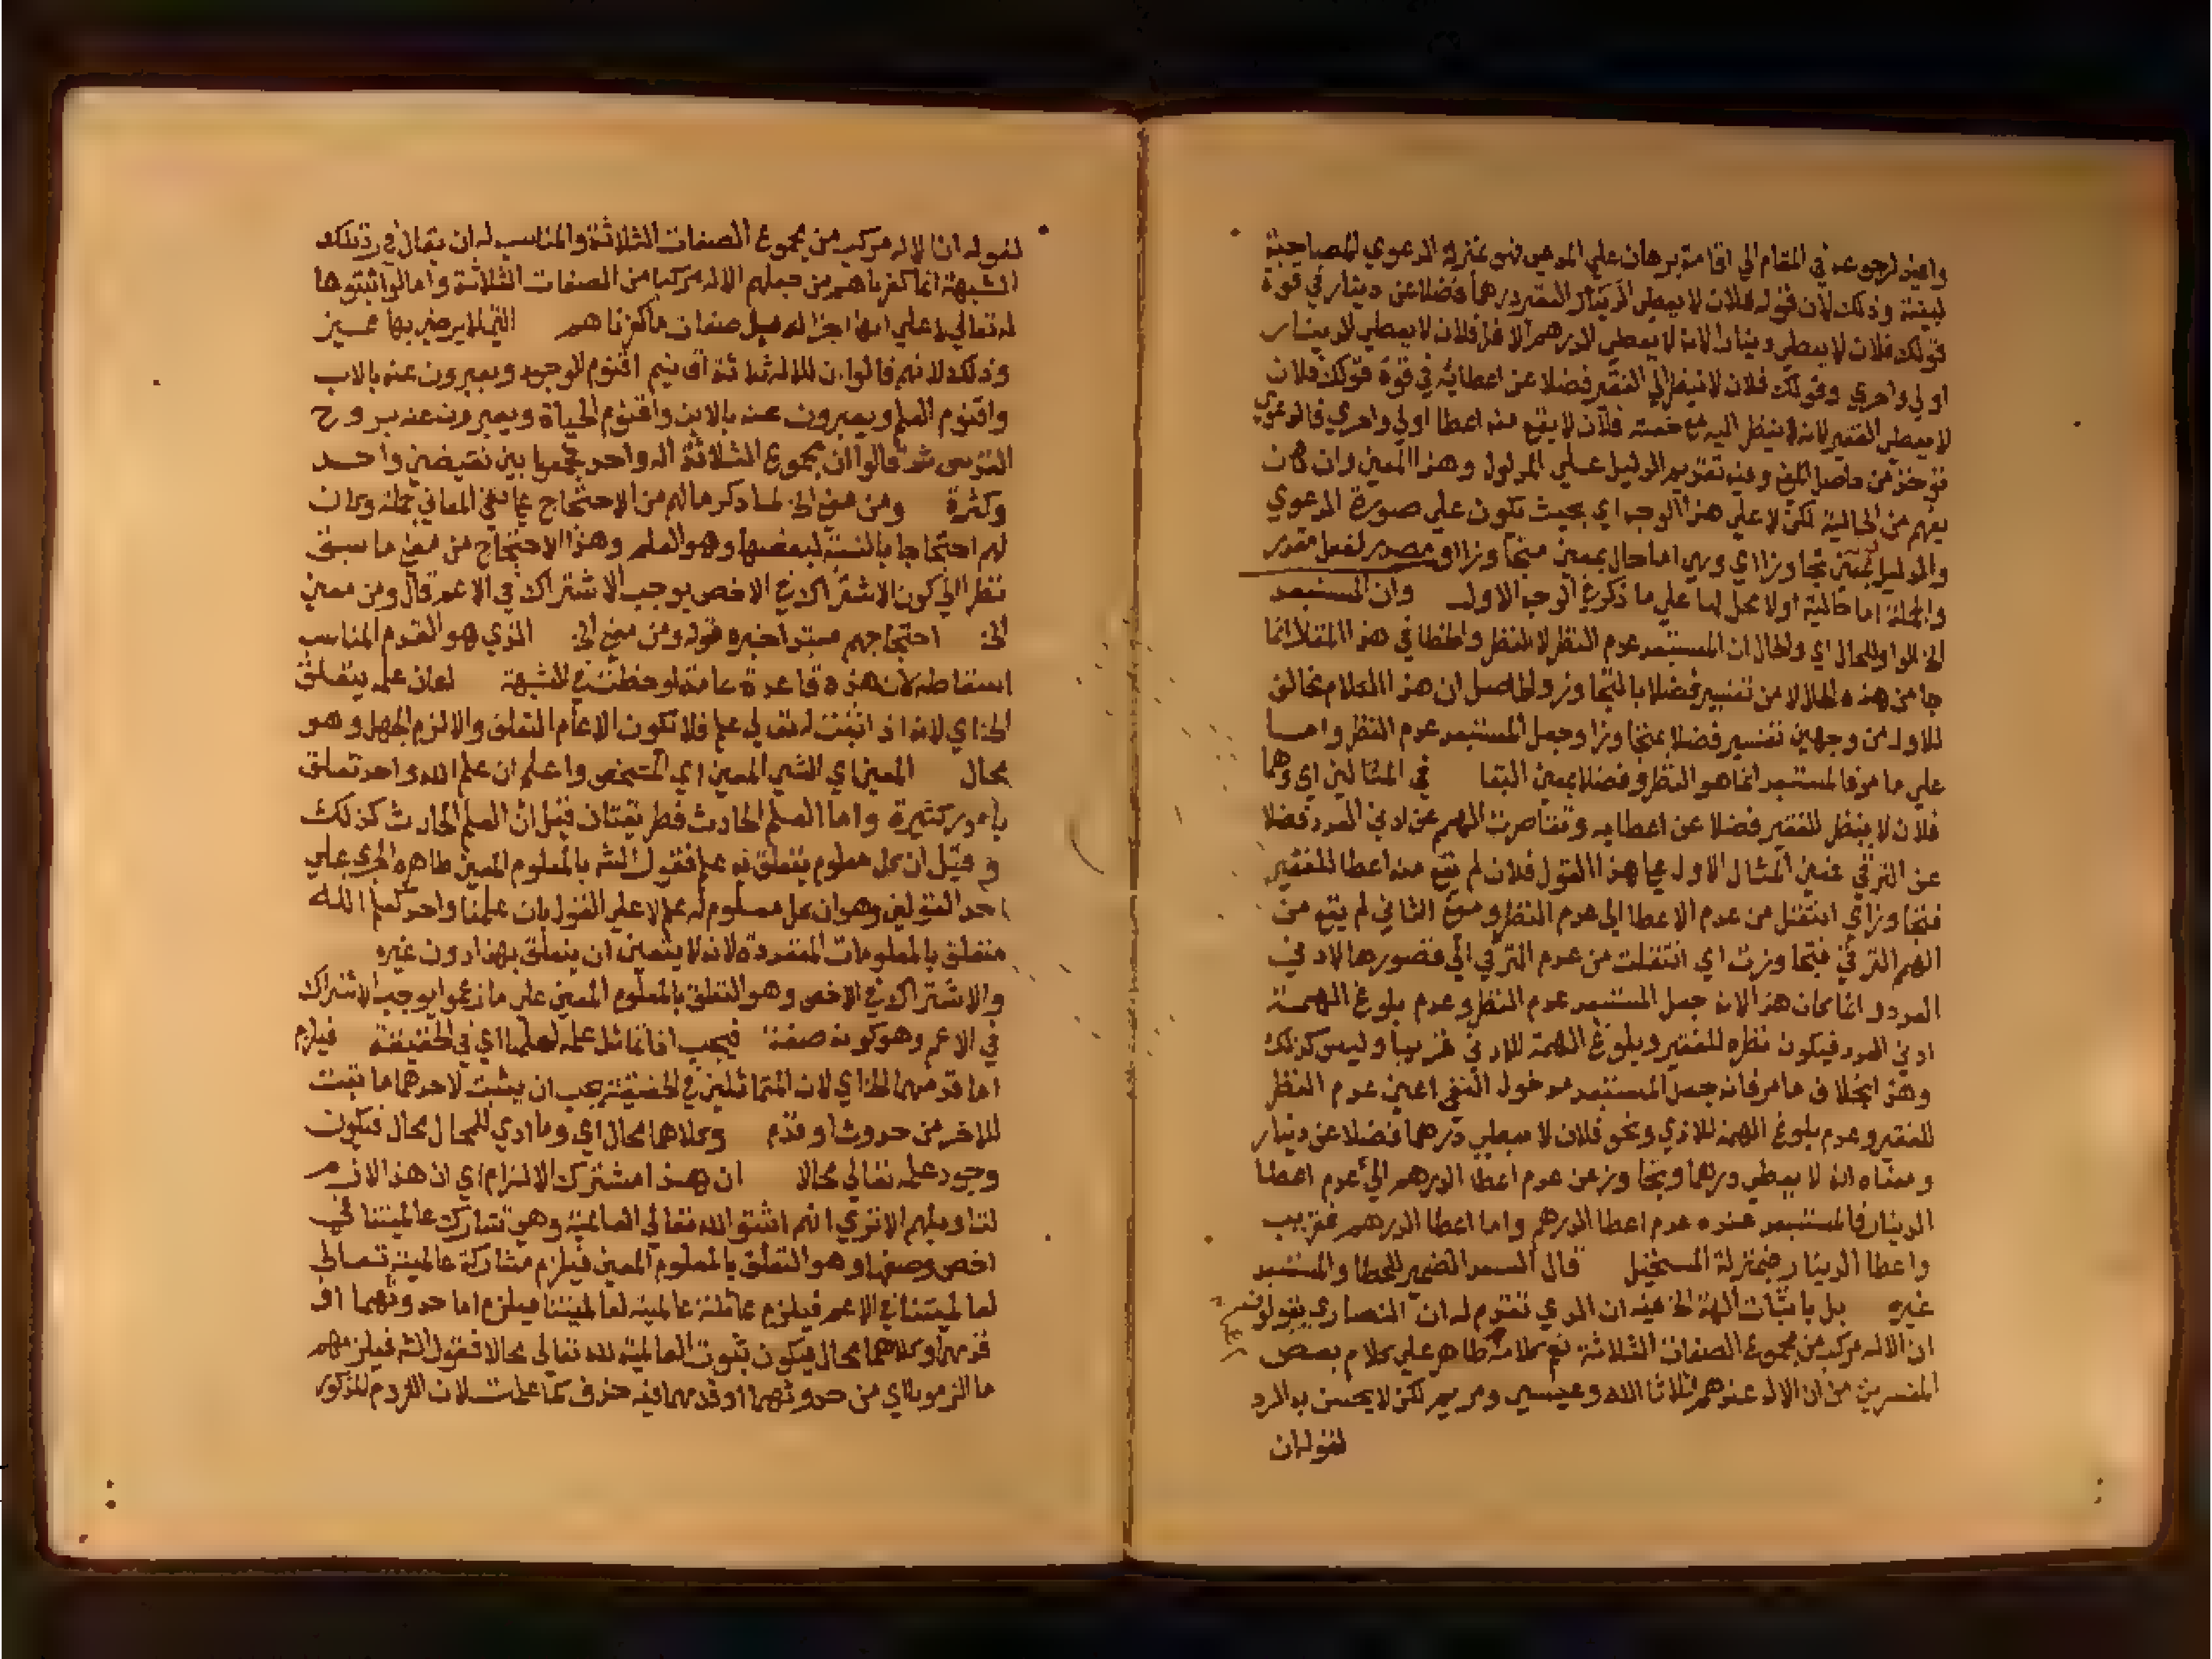 لبينة وذلك لان قوله فلان لا يعطي الفقير درهما فضلا عن دينار في قوة
قولك فلان لا يعطي دينارا لانه لا يعطي الدرهم الا فلان لا يعطي الدينار
اولي واحري وقولك فلان لا ينظر الي الفقير فضلا عن اعطايه في قوة قولك فلان
لا يعطي الفقير لانه لا ينظر اليه فلان لا يقع منه اعطا اولي واحري فالدعوي
توخذ من حاصل المعني وفيه تقديم الدليل علي المدلول وهذا المعني وان كان
يفهم من الحالية لكن لا علي هذا الوجه اي بحيث تكون علي صورة الدعوي
والدليل تجاوزا اي وهي اما حال بمعني متجاوزا او مصدر لفعل مقدر
والجملة اما حالية اولا محل لها علي ما ذكر في الوجه الاول وان المستبعد
الخ الواو للحال اي والحال ان المستبعد عدم النظر لا النظر والخطا في هذا المقال انما
جا من هذه الحال لا من تفسير فضلا بالتجاوز والحاصل ان هذا الكلام مخالف
للاول من وجهين تفسير فضلا بمتجاوزا وجعل المستبعد عدم النظر واما
علي ما مر فالمستبعد انما هو النظر وفضلا بمعني البقا في المثالين اي وهما
فلان لا ينظر للفقير فضلا عن اعطايه وتقاصرت الهمم عن ادني العدد فضلا
عن الترقي فمعني المثال الاول علي هذا القول فلان لم يقع منه اعطا للفقير
فتجاوز اي انتقل من عدم الاعطا الي عدم النظر ومعني الثاني لم يقع من
الهمم الترقي فتجاوزت اي انتقلت من عدم الترقي الي قصورها لادني
العدد وانما كان هذا لانه جعل المستبعد عدم النظر وعدم بلوغ الهمة
ادني العدد فيكون نظره للفقير وبلوغ الهمة للادني قريبا وليس كذلك
وهذا بخلاف ما مر فانه جعل المستبعد مدخول النفي اعني عدم النظر
للفقير وعدم بلوغ الهمة للادني ونحو فلان لا يعطي درهما فضلا عن دينار
ومعناه انه لا يعطي درهما وتجاوز عن عدم اعطا الدرهم الي عدم اعطا
الدينار فالمستبعد عنده عدم اعطا الدرهم واما اعطا الدرهم فقريب
واعطا الدينار بمنزلة المستحيل قال السعد الضمير للخطا والمستبعد
غيره بل باثبات الهة الخ فيه ان الذي تقدم له ان النصاري يقولون
ان الاله مركب من مجموع الصفات الثلاثة نعم كلامه ظاهر علي كلام بعض
المفسرين من ان الاله عندهم ثلاثة الله وعيسي ومريم لكن لا يحسن به الرد
لقوله ان
لقوله ان الاله مركب من مجموع الصفات الثلاثة والمناسب له ان يقال في رد تلك
الشبهة انما كفرناهم من جعلهم الاله مركبا من الصفات الثلاثة واما لو اثبتوها
له تعالي لا علي انها اجزا له بل صفات ما كفرناهم التي لا يرضي بها مميز
وذلك لانهم قالوا ان للاله ثلاثة اقانيم اقنوم الوجود ويعبرون عنه بالاب
واقنوم العلم ويعبرون عنه بالابن واقنوم الحياة ويعبرون عنه بروح
القدس ثم قالوا ان مجموع الثلاثة اله واحد فجمعوا بين نقيضين واحد
وكثرة ومن معني الخ لما ذكر مالهم من الاحتجاج علي نفي المعاني جملة وكان
لهم احتجاجا بالنسبة لبعضها وهو العلم وهذا الاحتجاج من معني ما سبق
نظرا الي كون الاشتراك في الاخص يوجب الاشتراك في الاعم قال ومن معني
الخ احتجاجهم مبتدا خبره قوله ومن معني الخ الذي هو القدم المناسب
اسقاطه لان هذه قاعدة عامة لوحظت في الشبهة لو ان علمه يتعلق
الخ اي لانه اذا اثبت له تعالي علم فلا تكون الا عام التعلق والا لزم الجهل وهو
محال المعين اي الشي المعين اي المشخص واعلم ان علم الله واحد تعلق
بامور كثيرة واما العلم الحادث فطريقتان فقيل ان العلم الحادث كذلك
وقيل ان كل معلوم يتعلق به علم فقول الشه بالمعلوم المعين ظاهره الجري علي
احد القولين وهو ان كل معلوم له علم لا علي القول بان علمنا واحد كعلم الله
متعلق بالمعلومات المتعددة لانه لا يتعين ان يتعلق بهذا دون غيره
والاشتراك في الاخص وهو التعلق بالمعلوم المعين علي ما زعموا يوجب الاشتراك
في الاعم وهو كونه صفة فيجب اذا تماثل علمه لعلمنا اي في الحقيقة فيلزم
اما قدمهما الخ اي لان المتماثلين في الحقيقة يجب ان يثبت لاحدهما ما ثبت
للاخر من حدوث او قدم وكلاهما محال اي وما ادي للمحال محال فيكون
وجود علمه تعالي محالا ان هذا مشترك الالزام اي ان هذا لازم
لنا ولهم الا تري انهم اثبتوا لله تعالي العالمية وهو تشارك عالميتنا في
اخص وصفها وهو التعلق بالمعلوم المعين فيلزم مشاركة عالميته تعالي
لعالميتنا في الاعم فيلزم مماثلة عالميته لعالميتنا فيلزم اما حدوثهما او
قدمهما وكلاهما محال فيكون ثبوت العالمية لله تعالي محالا فقول الشه فيلزمهم
ما الزموه اي من حدوثهما او قدمهما فيه حذف كما علمت لان اللزوم المذكور